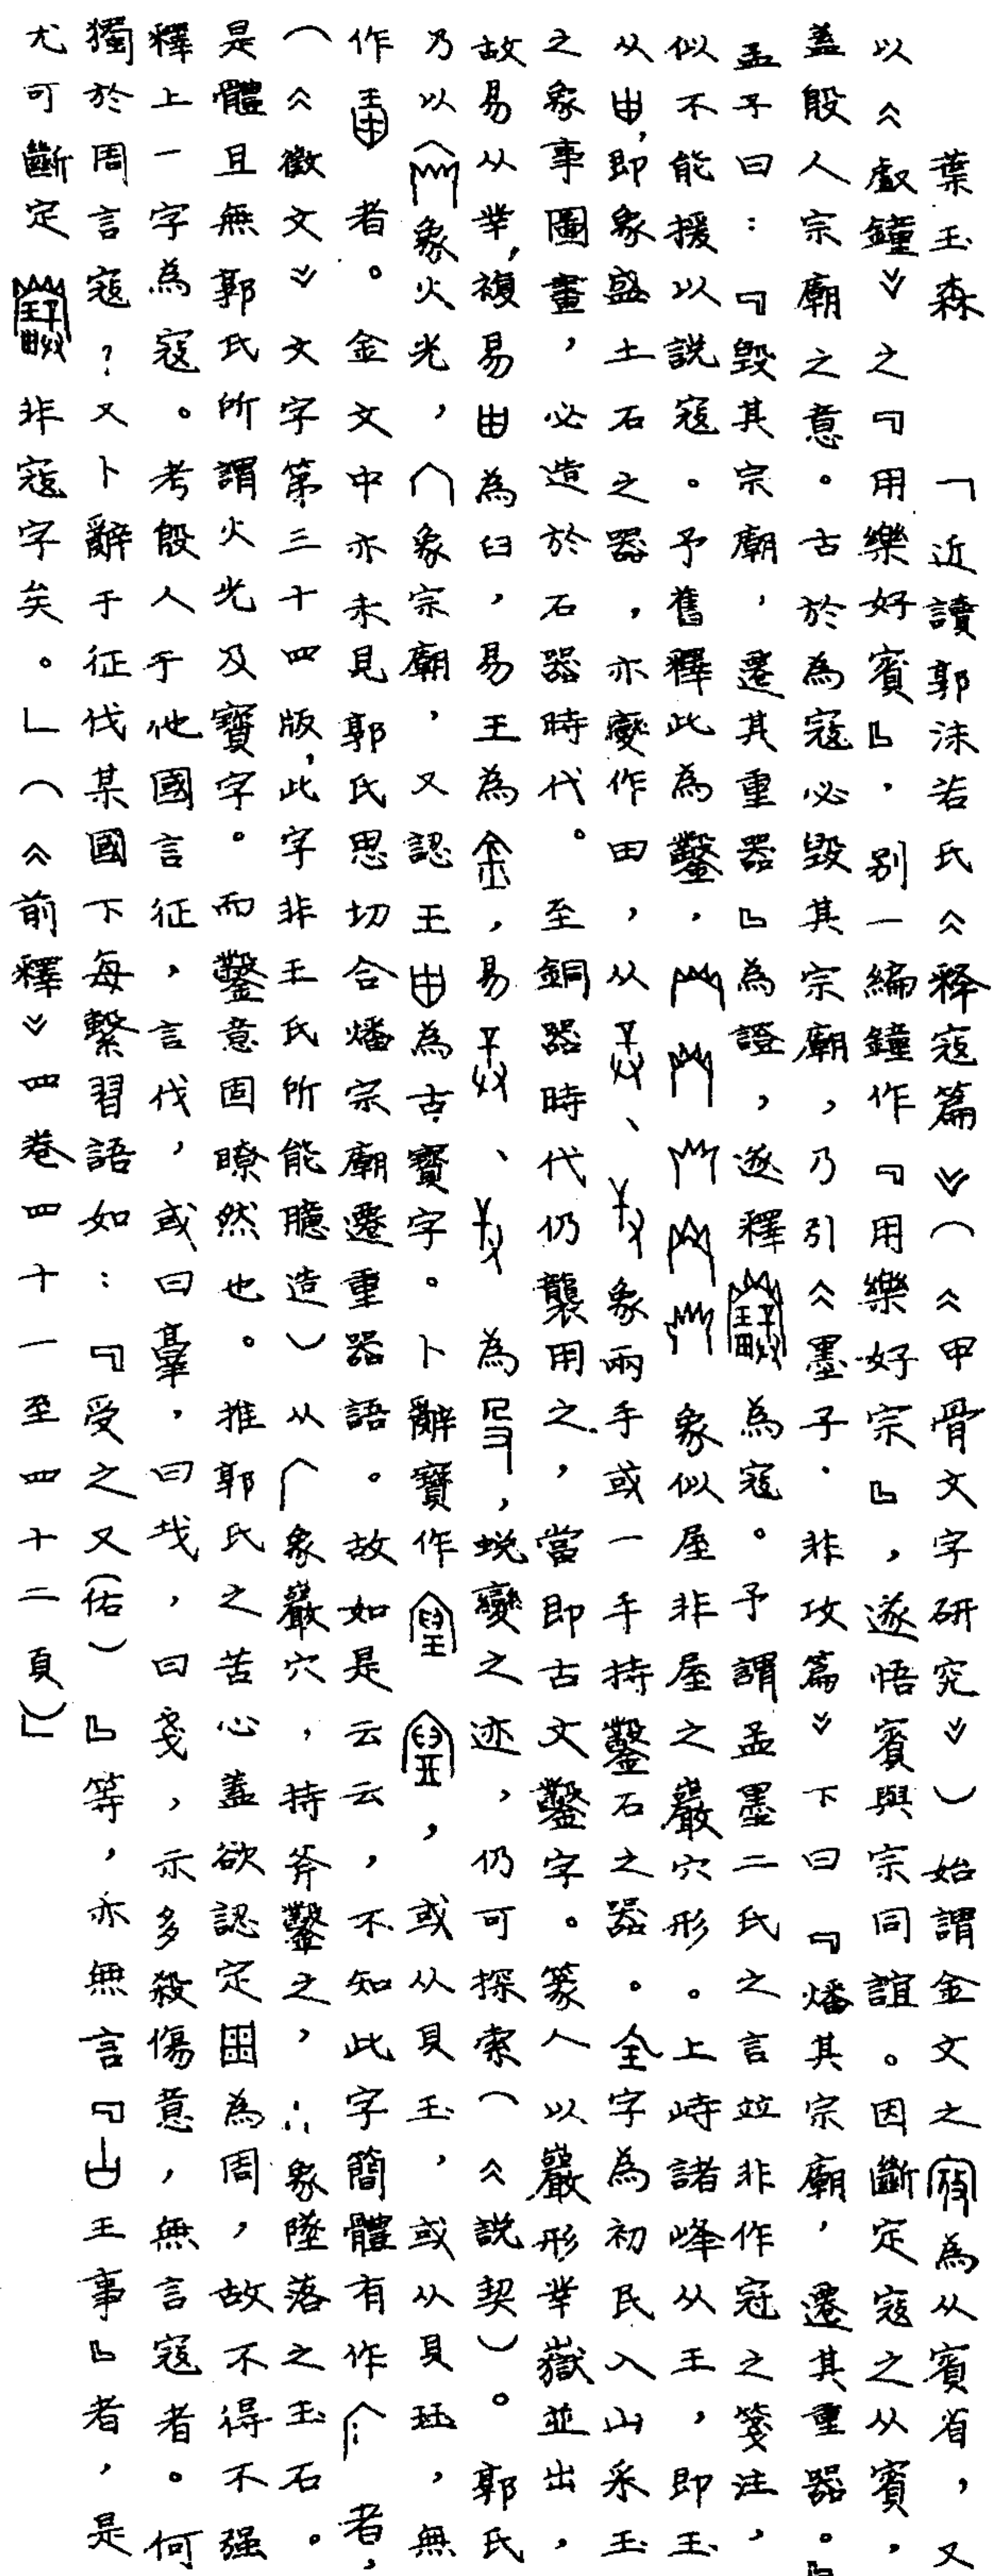 葉玉森 「近讀郭沫若氏《释寇篇》(《甲骨文字研究》)始謂金文之為从賓省,又
以《𠭯鐘》之『用樂好賓』,别一編鐘作『用樂好宗』,遂悟賓與宗同誼。因斷定寇之从賓,
蓋殷人宗廟之意。古於為寇必毁其宗廟,乃引《墨子·非攻篇》下曰『燔其宗廟,遷其重器。』
孟子曰:『毁其宗廟,遷其重器』為證,遂釋為寇。予謂孟墨二氏之言並非作冠之箋注,
似不能援以說寇。予舊釋此為鑿,象似屋非屋之巖穴形。上峙諸峰从王,即玉
从由,即象盛土石之器,亦變作田,从、象兩手或一手持鑿石之器。全字為初民入山采玉
之象事圖畫,必造於石器時代。至銅器時代仍襲用之,當即古文鑿字。篆人以巖形丵嶽並出,
故易从丵,複易由為臼,易王為金,易、為殳,蜕變之迹,仍可探索(《説契》)。郭氏
乃以象火光,象宗廟,又認王由為古寶字。卜辭寶作,或从貝玉,或从貝珏,無
作者。金文中亦未見郭氏思切合燔宗廟遷重器語。故如是云云,不知此字簡體有作者,
(《徵文》文字第三十四版,此字非王氏所能臆造)从象巖穴,持斧鑿之,象墜落之玉石。
是體且無郭氏所謂火光及寶字。而鑿意固瞭然也。推郭氏之苦心蓋欲認定為周,故不得不强
釋上一字為寇。考殷人于他國言征,言伐,或曰𦎫,曰𢦏,曰戔,示多殺傷意,無言寇者。何
獨於周言寇?又卜辭于征伐某國下每繫習語如:『受之又(佑)』等,亦無言『王事』者,是
尤可斷定非寇字矣。」(《前釋》四卷四十一至四十二頁)」